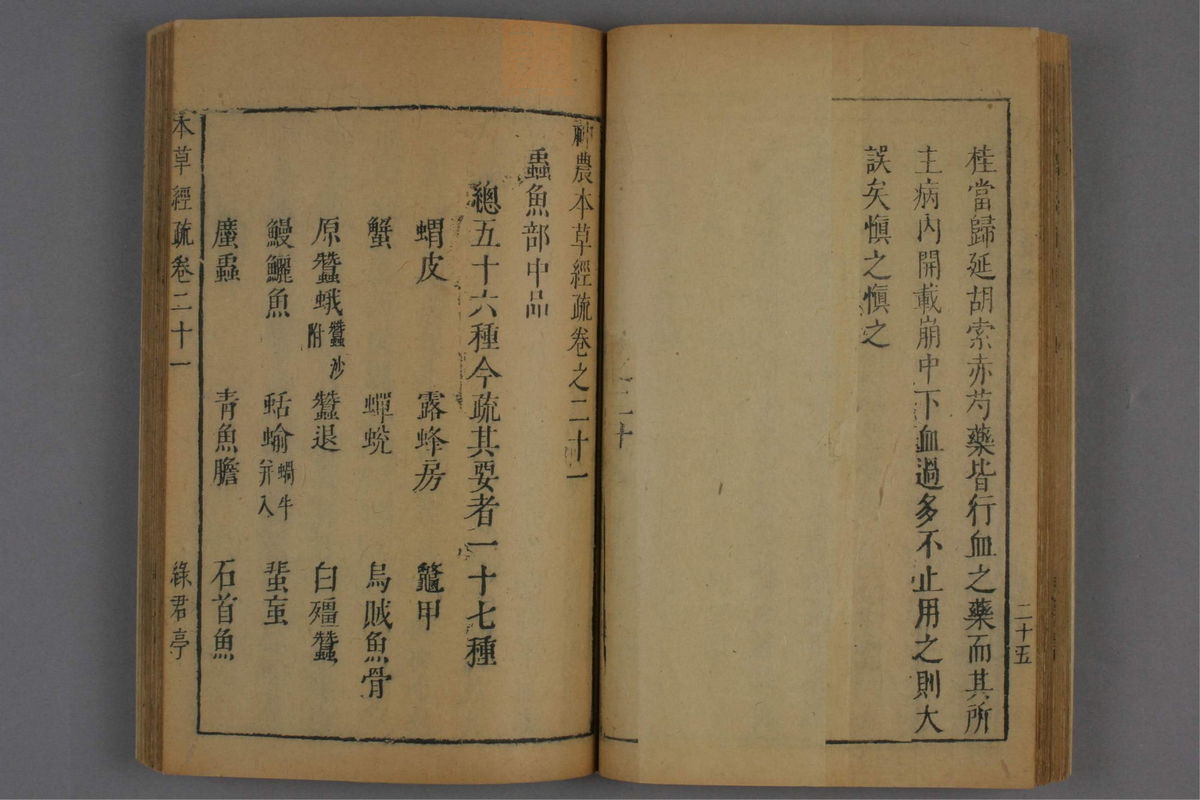 二十五
桂當歸延胡索赤芍藥皆行血之藥而其所
主病內開載崩中下血過多不止用之則大
誤矣慎之慎之
之二十
神農本草經疏卷之二十一
蟲魚部中品
總五十六種今疏其要者一十七種
蝟皮 露蜂房 鼈甲
蟹 蟬蛻 烏賊魚骨
原蠶蛾 蠶沙附 蠶退 白殭蠶
鰻鱺魚 蛞蝓 蝸牛并入 蜚䖟
䗪蟲 青魚膽 石首魚
本草經疏卷二十一 綠君亭